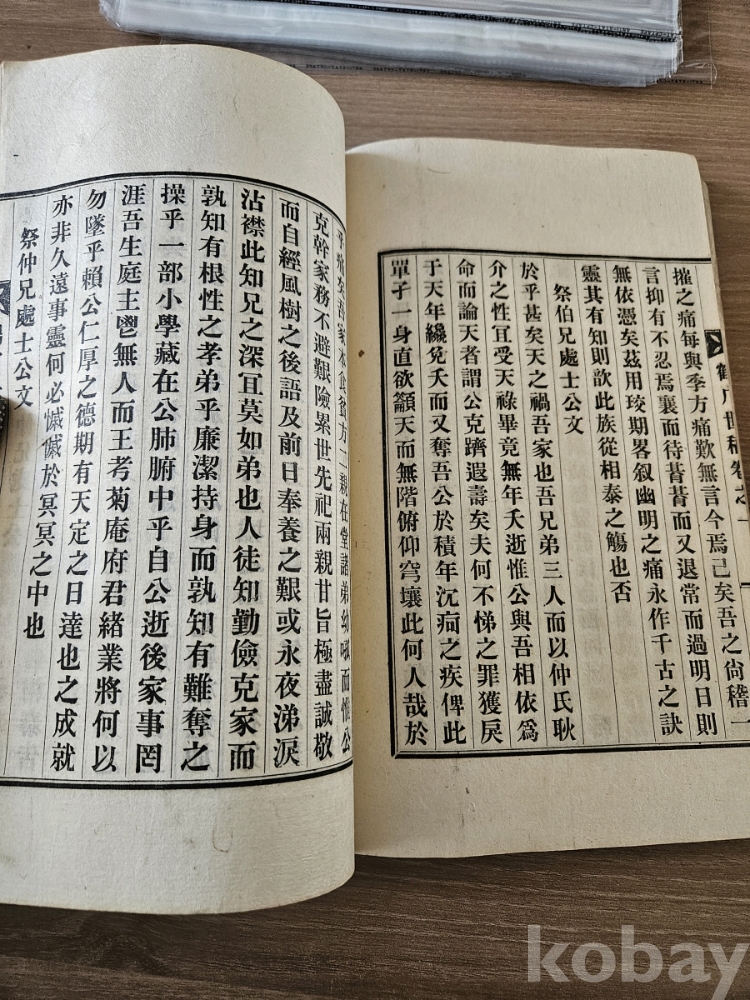 世稿卷之一
摧之痛每與季方痛歎無言今焉已矣吾之尙稽一
言抑有不忍焉襄而待朞朞而又退常而過明日則
無依憑矣玆用琰期畧叙幽明之痛永作千古之訣
靈其有知則歆此族從相泰之觴也否
祭伯兄處士公文
於乎甚矣天之禍吾家也吾兄弟三人而以仲氏耿
介之性宜受天祿畢竟無年夭逝惟公與吾相依爲
命而論天者謂公克躋遐壽矣夫何不悌之罪獲戾
于天年纔兌夭而又奪吾公於積年沉痾之疾俾此
單孑一身直欲籲天而無階俯仰穹壤此何人哉於
吾家本食貧方二親在堂諸弟幼 而惟公
克幹家務不避艱險累世先祀兩親甘旨極盡誠敬
而自經風樹之後語及前日奉養之艱或永夜涕淚
沾襟此知兄之深宜莫如弟也人徒知勤儉克家而
孰知有根性之孝弟乎廉潔持身而孰知有難奪之
操乎一部小學藏在公肺腑中乎自公逝後家事罔
涯吾生庭主鬯無人而王考菊庵府君緖業將何以
勿墜乎賴公仁厚之德期有天定之日達也之成就
亦非久遠事靈何必慽慽於冥冥之中也
祭仲兄處士公文
kobay